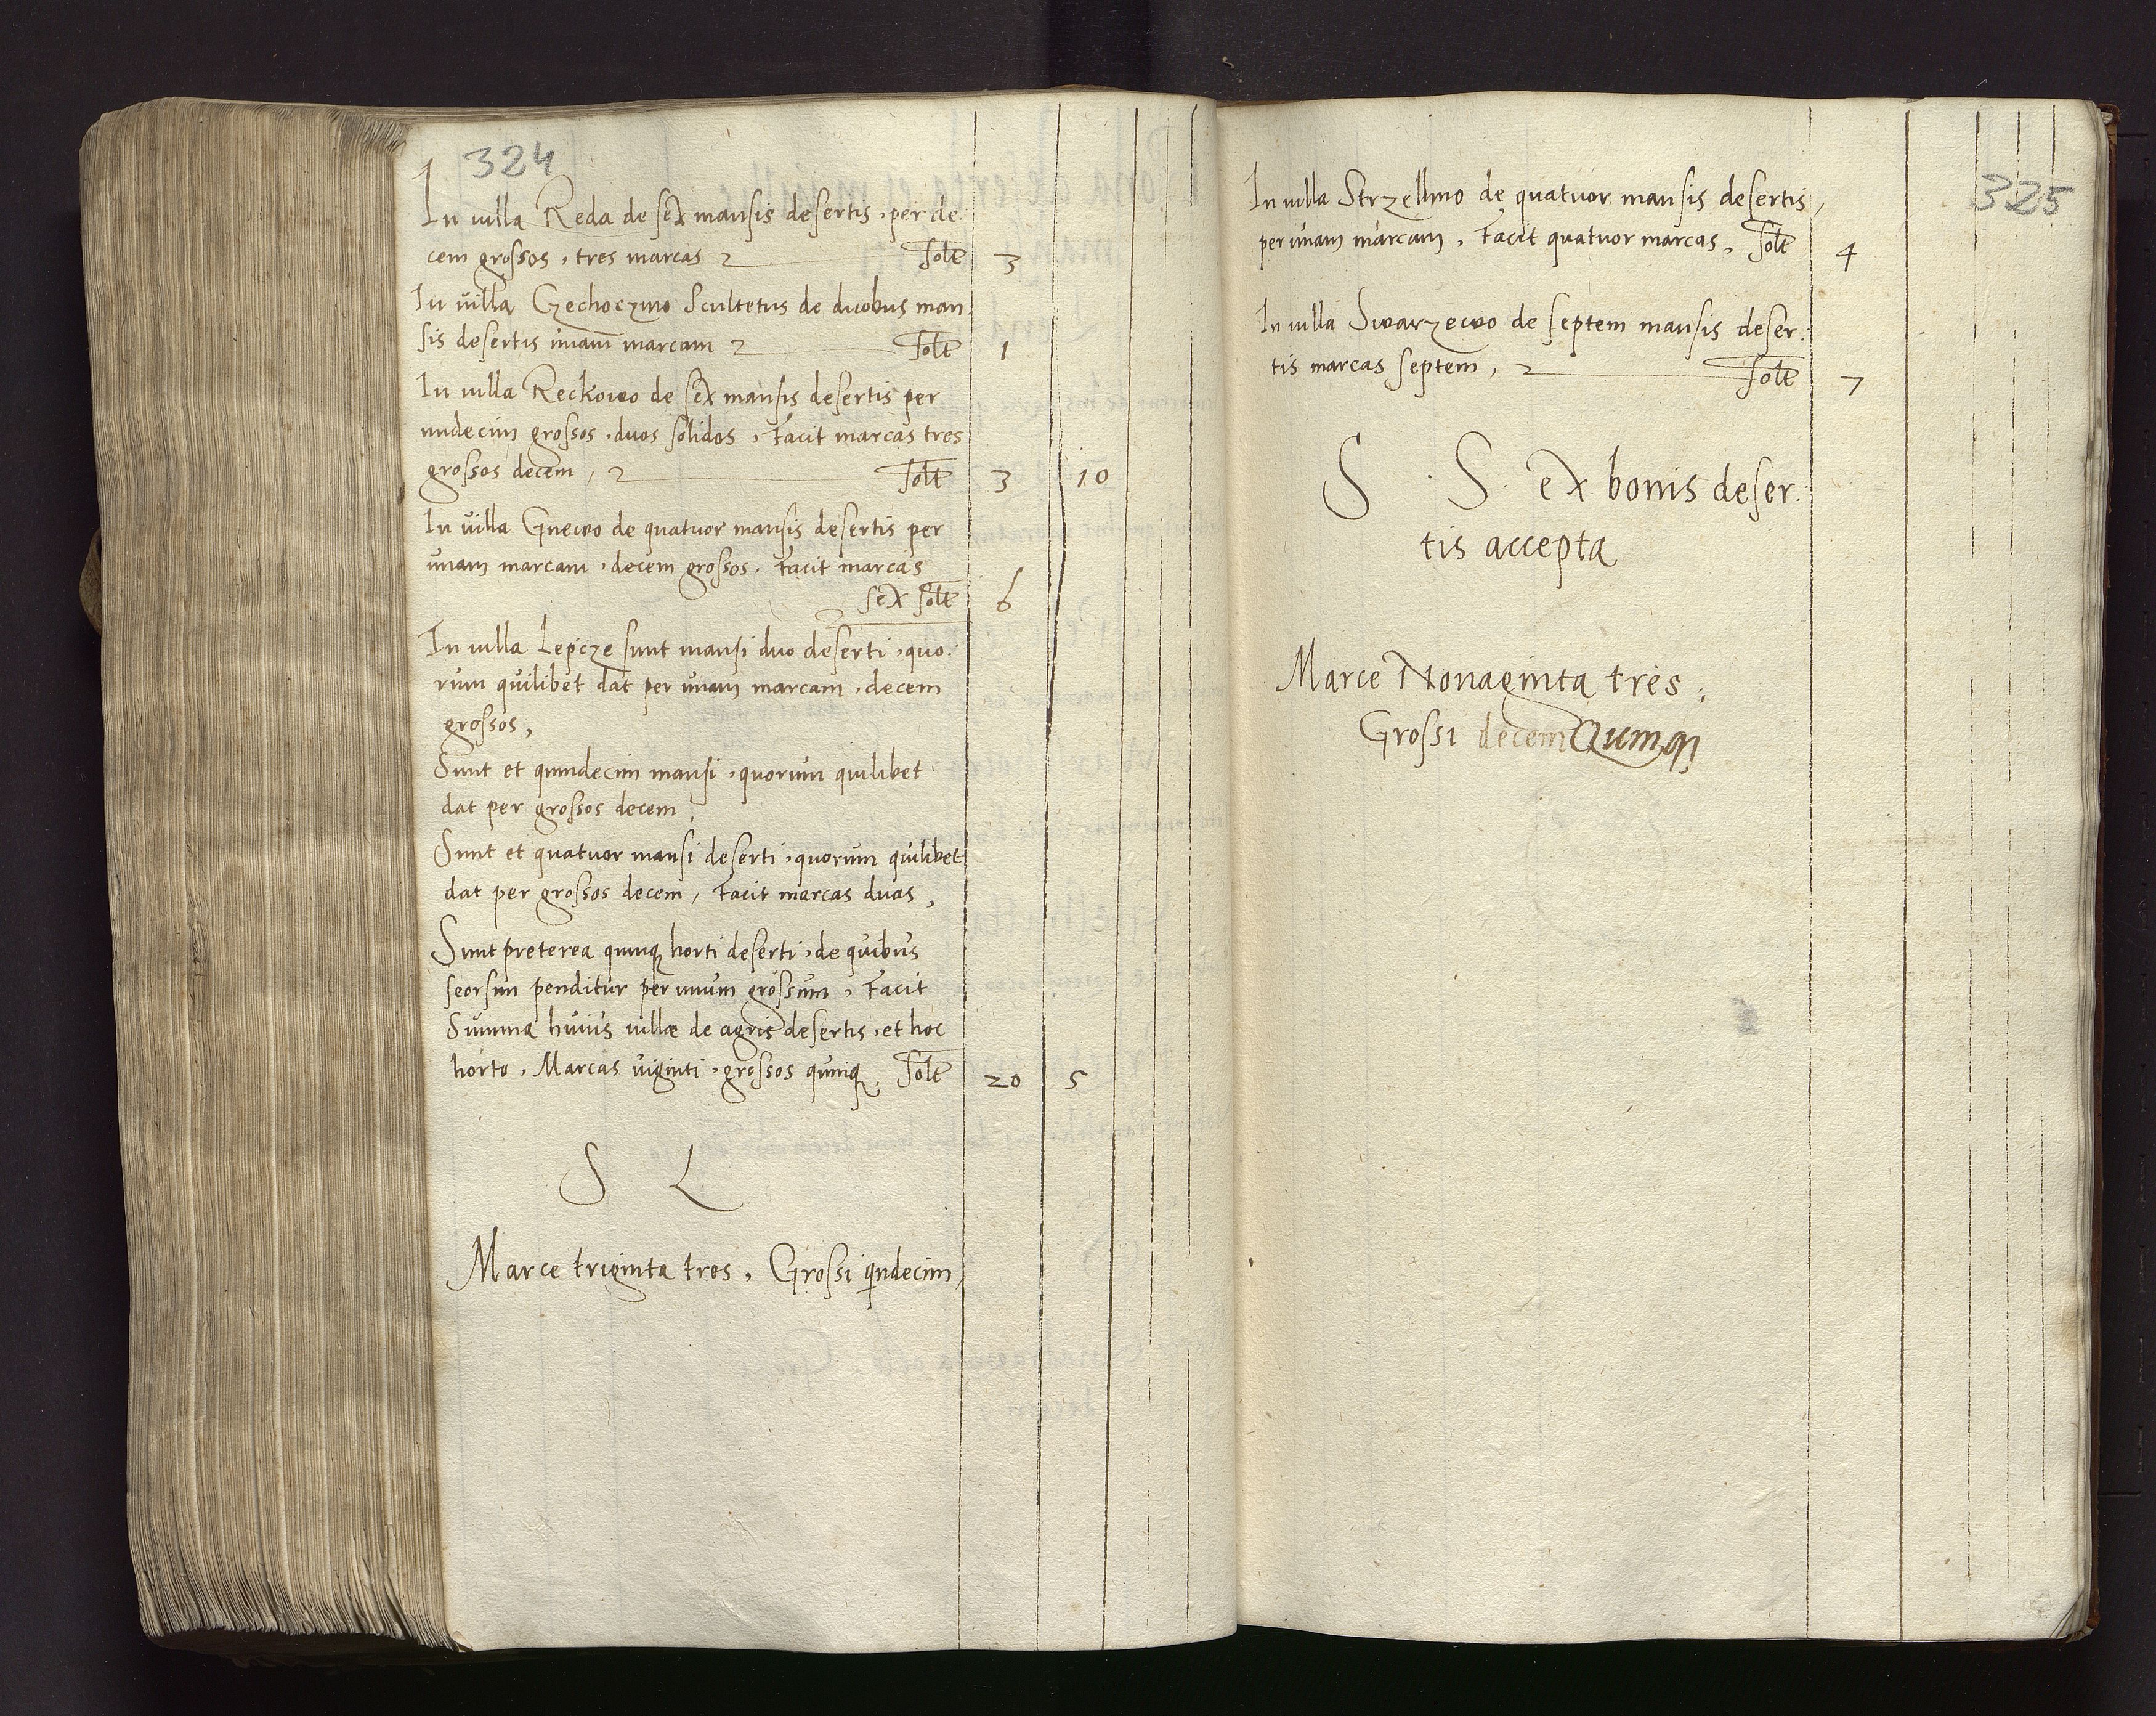 324
In villa Reda de sex mansis desertis, per de:
cem grossos, tres marcas solt 3
In villa Czechoczyno Scultetus de duobus man:
sis desertis unam marcam solt 1
In villa Reckowo de sex mansis desertis per
undecim grossos, duos solidos, Facit marcas tres
grossos decem, solt 3 10
In villa Gnewo de quatuor mansis desertis per
unam marcam, decem grossos, Facit marcas
sex solt 6
In villa Lepcze sunt mansi duo deserti, quo:
rum quilibet dat per unam marcam, decem
grossos,
Sunt et quindecim mansi, quorum quilibet
dat per grossos decem,
Sunt et quatuor mansi deserti, quorum quilibet
dat per grossos decem, Facit marcas duas,
Sunt preterea quinq horti deserti, de quibus
seorsim penditur per unum grossum, Facit
Summa huius villæ de agris desertis, et hoc
horto, Marcas viginti, grossos quinq, solt 20 5
S L
Marce triginta tres, Grossi qindecim,
325
In villa Strzellino de quatuor mansis desertis,
per unam marcam, Facit quatuor marcas, solt 4
In villa Swarzewo de septem mansis deser:
tis marcas septem, solt 7
S S ex bonis deser:
tis accepta
Marce Nonaginta tres,
Grossi decem Quinq